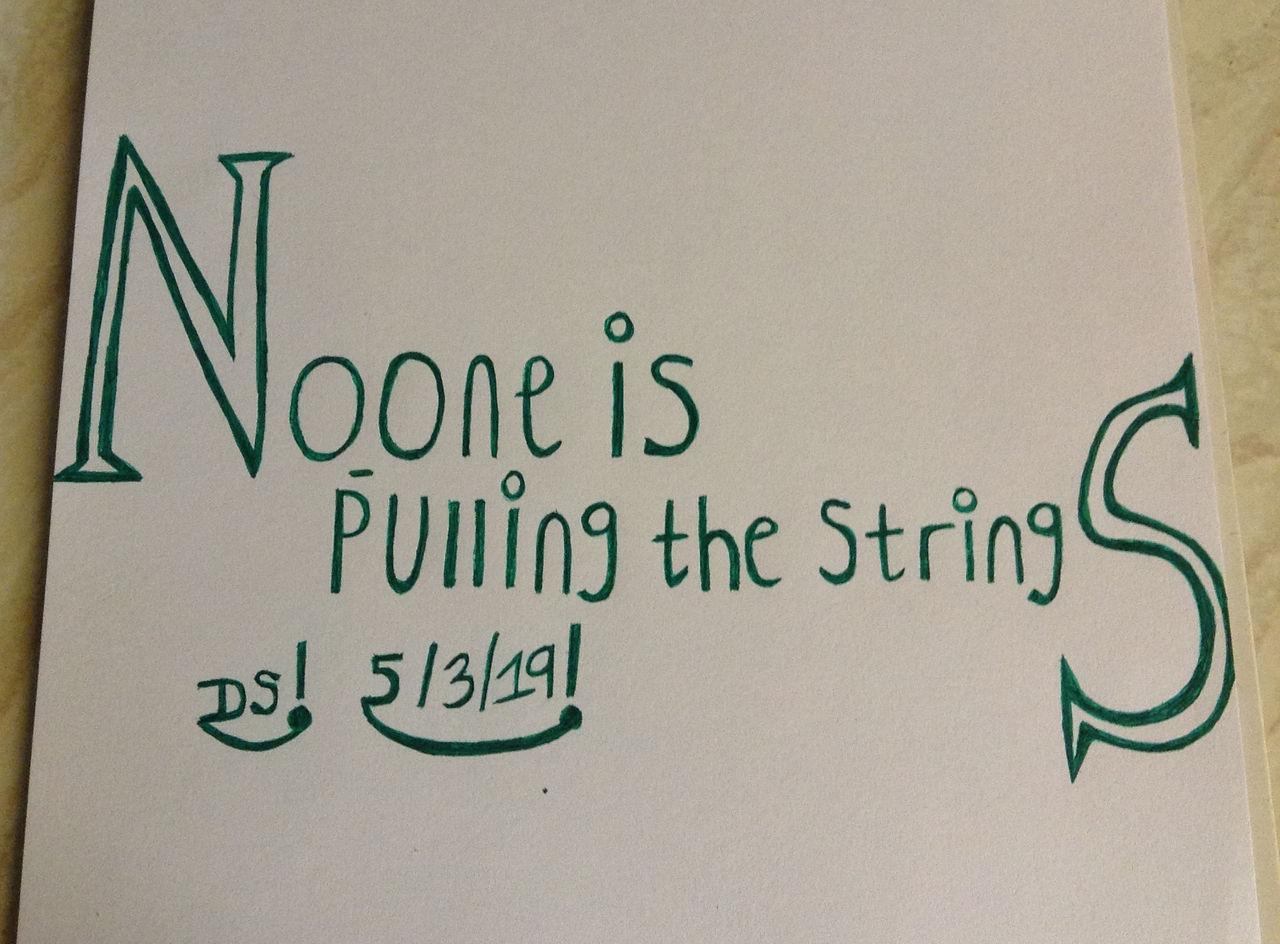 Noone is
Pulling the StringS
DS! 5/3/19!